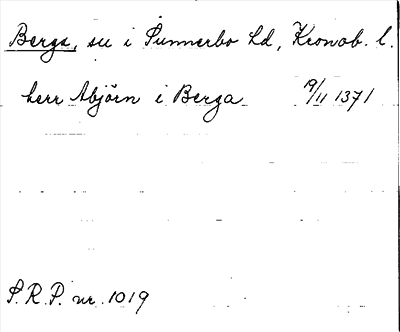 Berga, sn i Sunnerbo hd, Kronob. l.
herr Abjörn i Berga 19/11 1371
S.R.P. nr. 1019